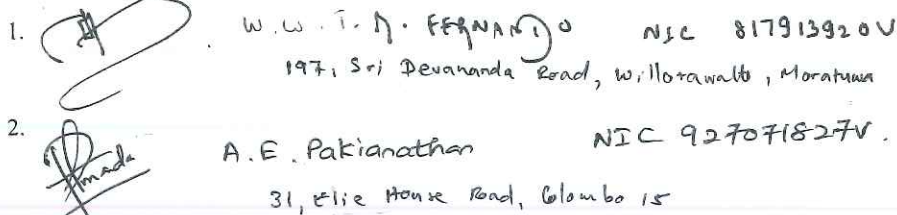 1. W.W.T.D. FERNANDO NIC 817913920V
197, Sri Devananda Road, Willorawatte, Moratuwa
2. A.E. Pakianathan NIC 927071827V.
31, Elie House Road, Colombo 15